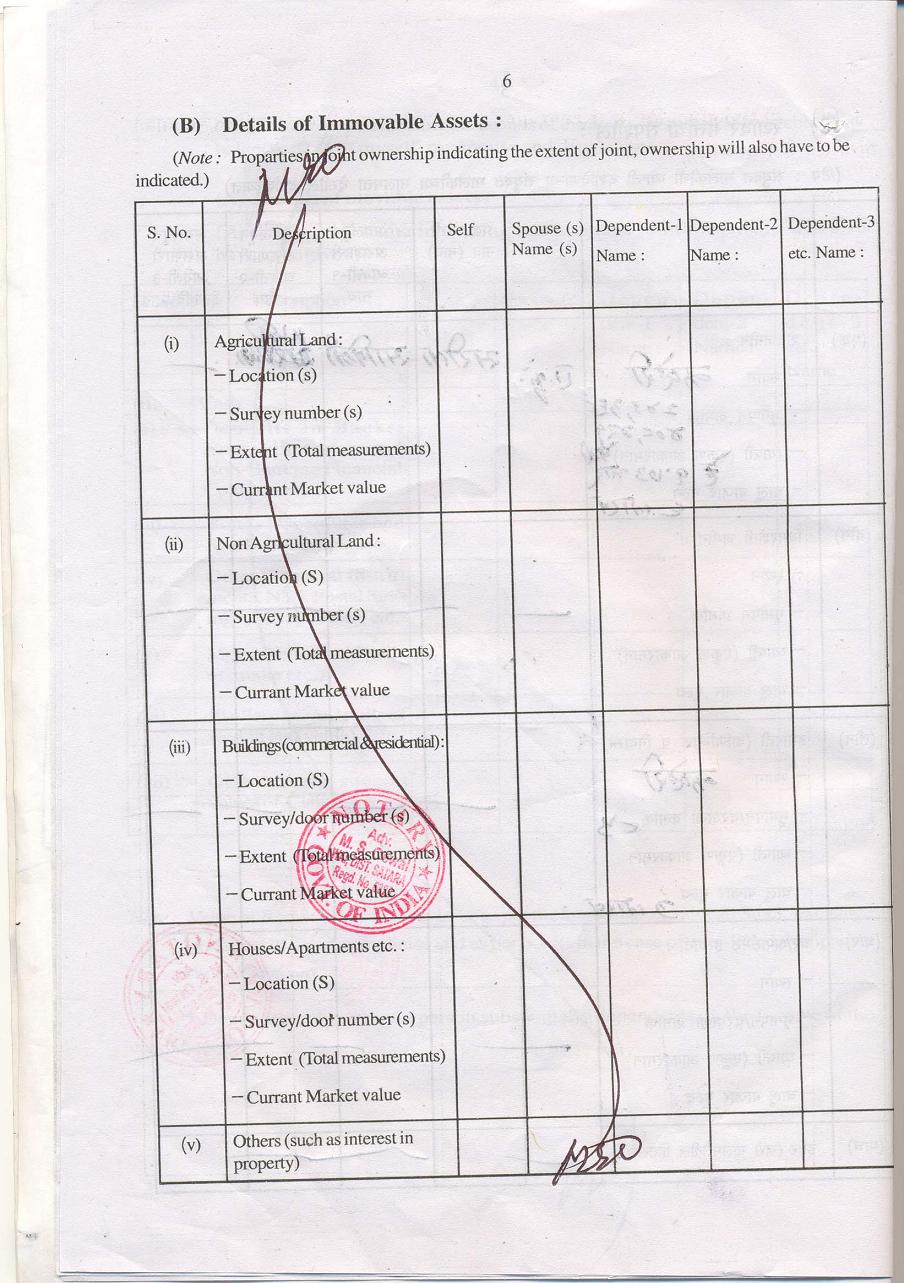 6
(B) Details of Immovable Assets :
(Note : Proparties in joint ownership indicating the extent of joint, ownership will also have to be
indicated.)
S. No. Description Self Spouse (s) Name (s) Dependent-1 Name : Dependent-2 Name : Dependent-3 etc. Name :
(i) Agricultural Land :
– Location (s)
– Survey number (s)
– Extent (Total measurements)
– Currant Market value
(ii) Non Agricultural Land :
– Location (S)
– Survey number (s)
– Extent (Total measurements)
– Currant Market value
(iii) Buildings (commercial & residential) :
– Location (S)
– Survey/door number (s)
– Extent (Total measurements)
– Currant Market value
NOTARY
Adv.
DIST. SATARA
Regd. No.
GOVT. OF INDIA
(iv) Houses/Apartments etc. :
– Location (S)
– Survey/door number (s)
– Extent (Total measurements)
– Currant Market value
(v) Others (such as interest in
property)